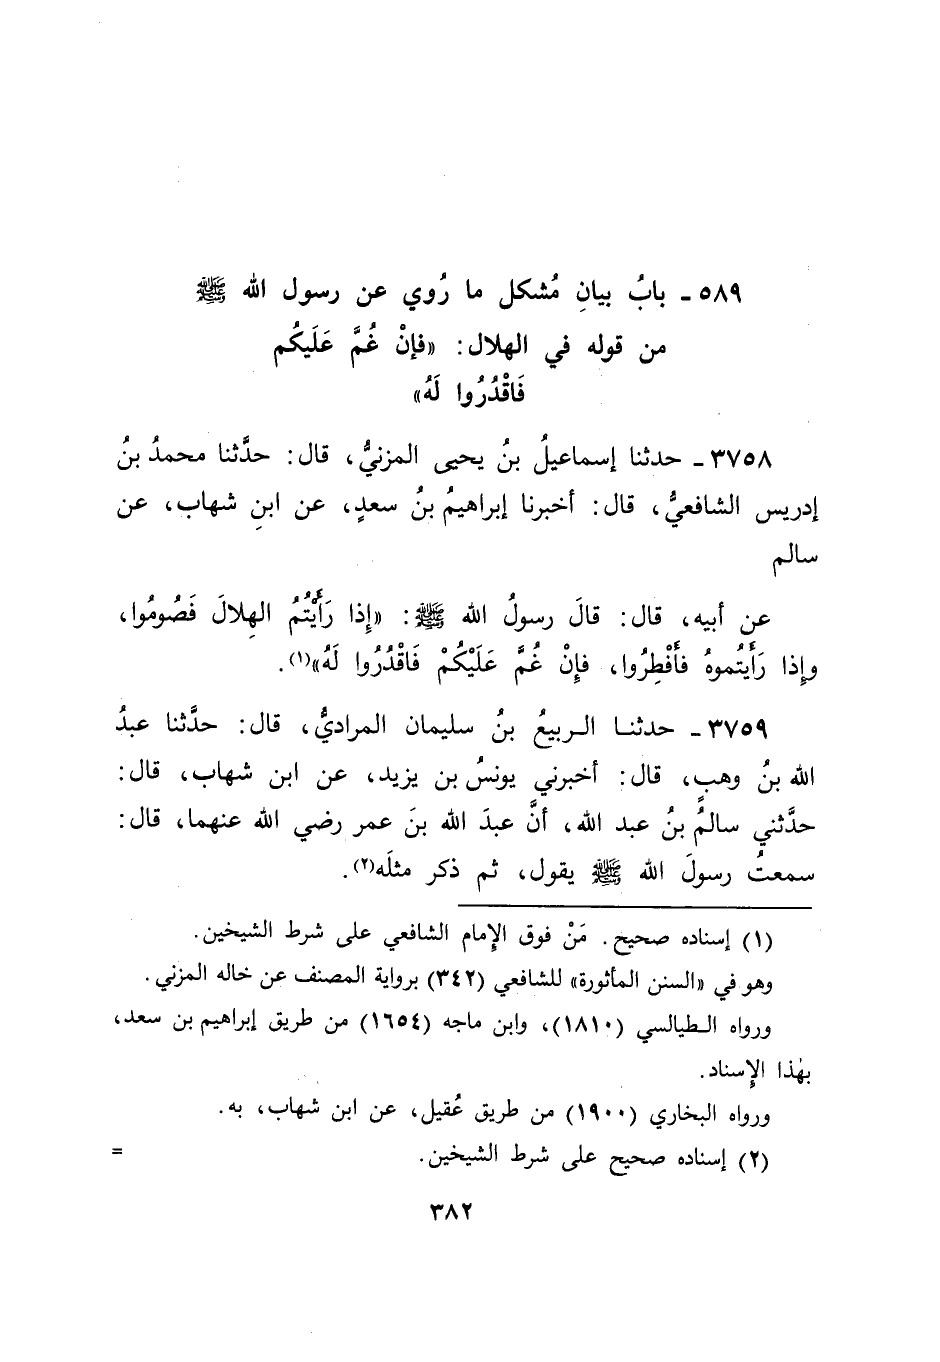 ٥٨٩ ـ بابُ بيانِ مُشكل ما رُوي عن رسول الله ﷺ
من قوله في الهلال: «فإنْ غُمَّ عَلَيكُم
فَاقْدُرُوا لَهُ»
٣٧٥٨ ـ حدثنا إسماعيلُ بنُ يحيى المزنيُّ، قال: حدَّثنا محمدُ بنُ
إدريس الشافعيُّ، قال: أخبرنا إبراهيمُ بنُ سعدٍ، عن ابنِ شهاب، عن
سالم
عن أبيه، قال: قالَ رسولُ الله ﷺ: «إذا رَأَيْتُمُ الهِلالَ فَصُومُوا،
وإذا رَأَيتُموهُ فأَفْطِرُوا، فإنْ غُمَّ عَلَيْكُمْ فَاقْدُرُوا لَهُ»(١).
٣٧٥٩ ـ حدثنـا الـربيعُ بنُ سليمان المراديُّ، قال: حدَّثنا عبدُ
الله بنُ وهبٍ، قال: أخبرني يونسُ بن يزيد، عن ابن شهاب، قال:
حدَّثني سالمُ بنُ عبد الله، أنَّ عبدَ الله بنَ عمر رضي الله عنهما، قال:
سمعتُ رسولَ الله ﷺ يقول، ثم ذكر مثلَه(٢).
(١) إسناده صحيح. مَنْ فوق الإمام الشافعي على شرط الشيخين.
وهو في «السنن المأثورة» للشافعي (٣٤٢) برواية المصنف عن خاله المزني.
ورواه الـطيالسي (١٨١٠)، وابن ماجه (١٦٥٤) من طريق إبراهيم بن سعد،
بهٰذا الإسناد.
ورواه البخاري (١٩٠٠) من طريق عُقيل، عن ابن شهاب، به.
(٢) إسناده صحيح على شرط الشيخين. =
٣٨٢